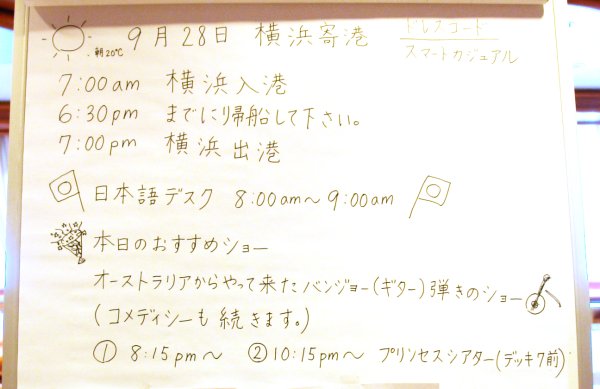 朝20℃ 9月28日 横浜寄港 ドレスコード
スマートカジュアル
7:00am 横浜入港
6:30pm までに帰船して下さい。
7:00pm 横浜出港
日本語デスク 8:00am〜9:00am
本日のおすすめショー
オーストラリアからやって来たバンジョー(ギター)弾きのショー
(コメディシーも続きます。)
① 8:15pm〜 ②10:15pm〜 プリンセスシアター(デッキ7前)